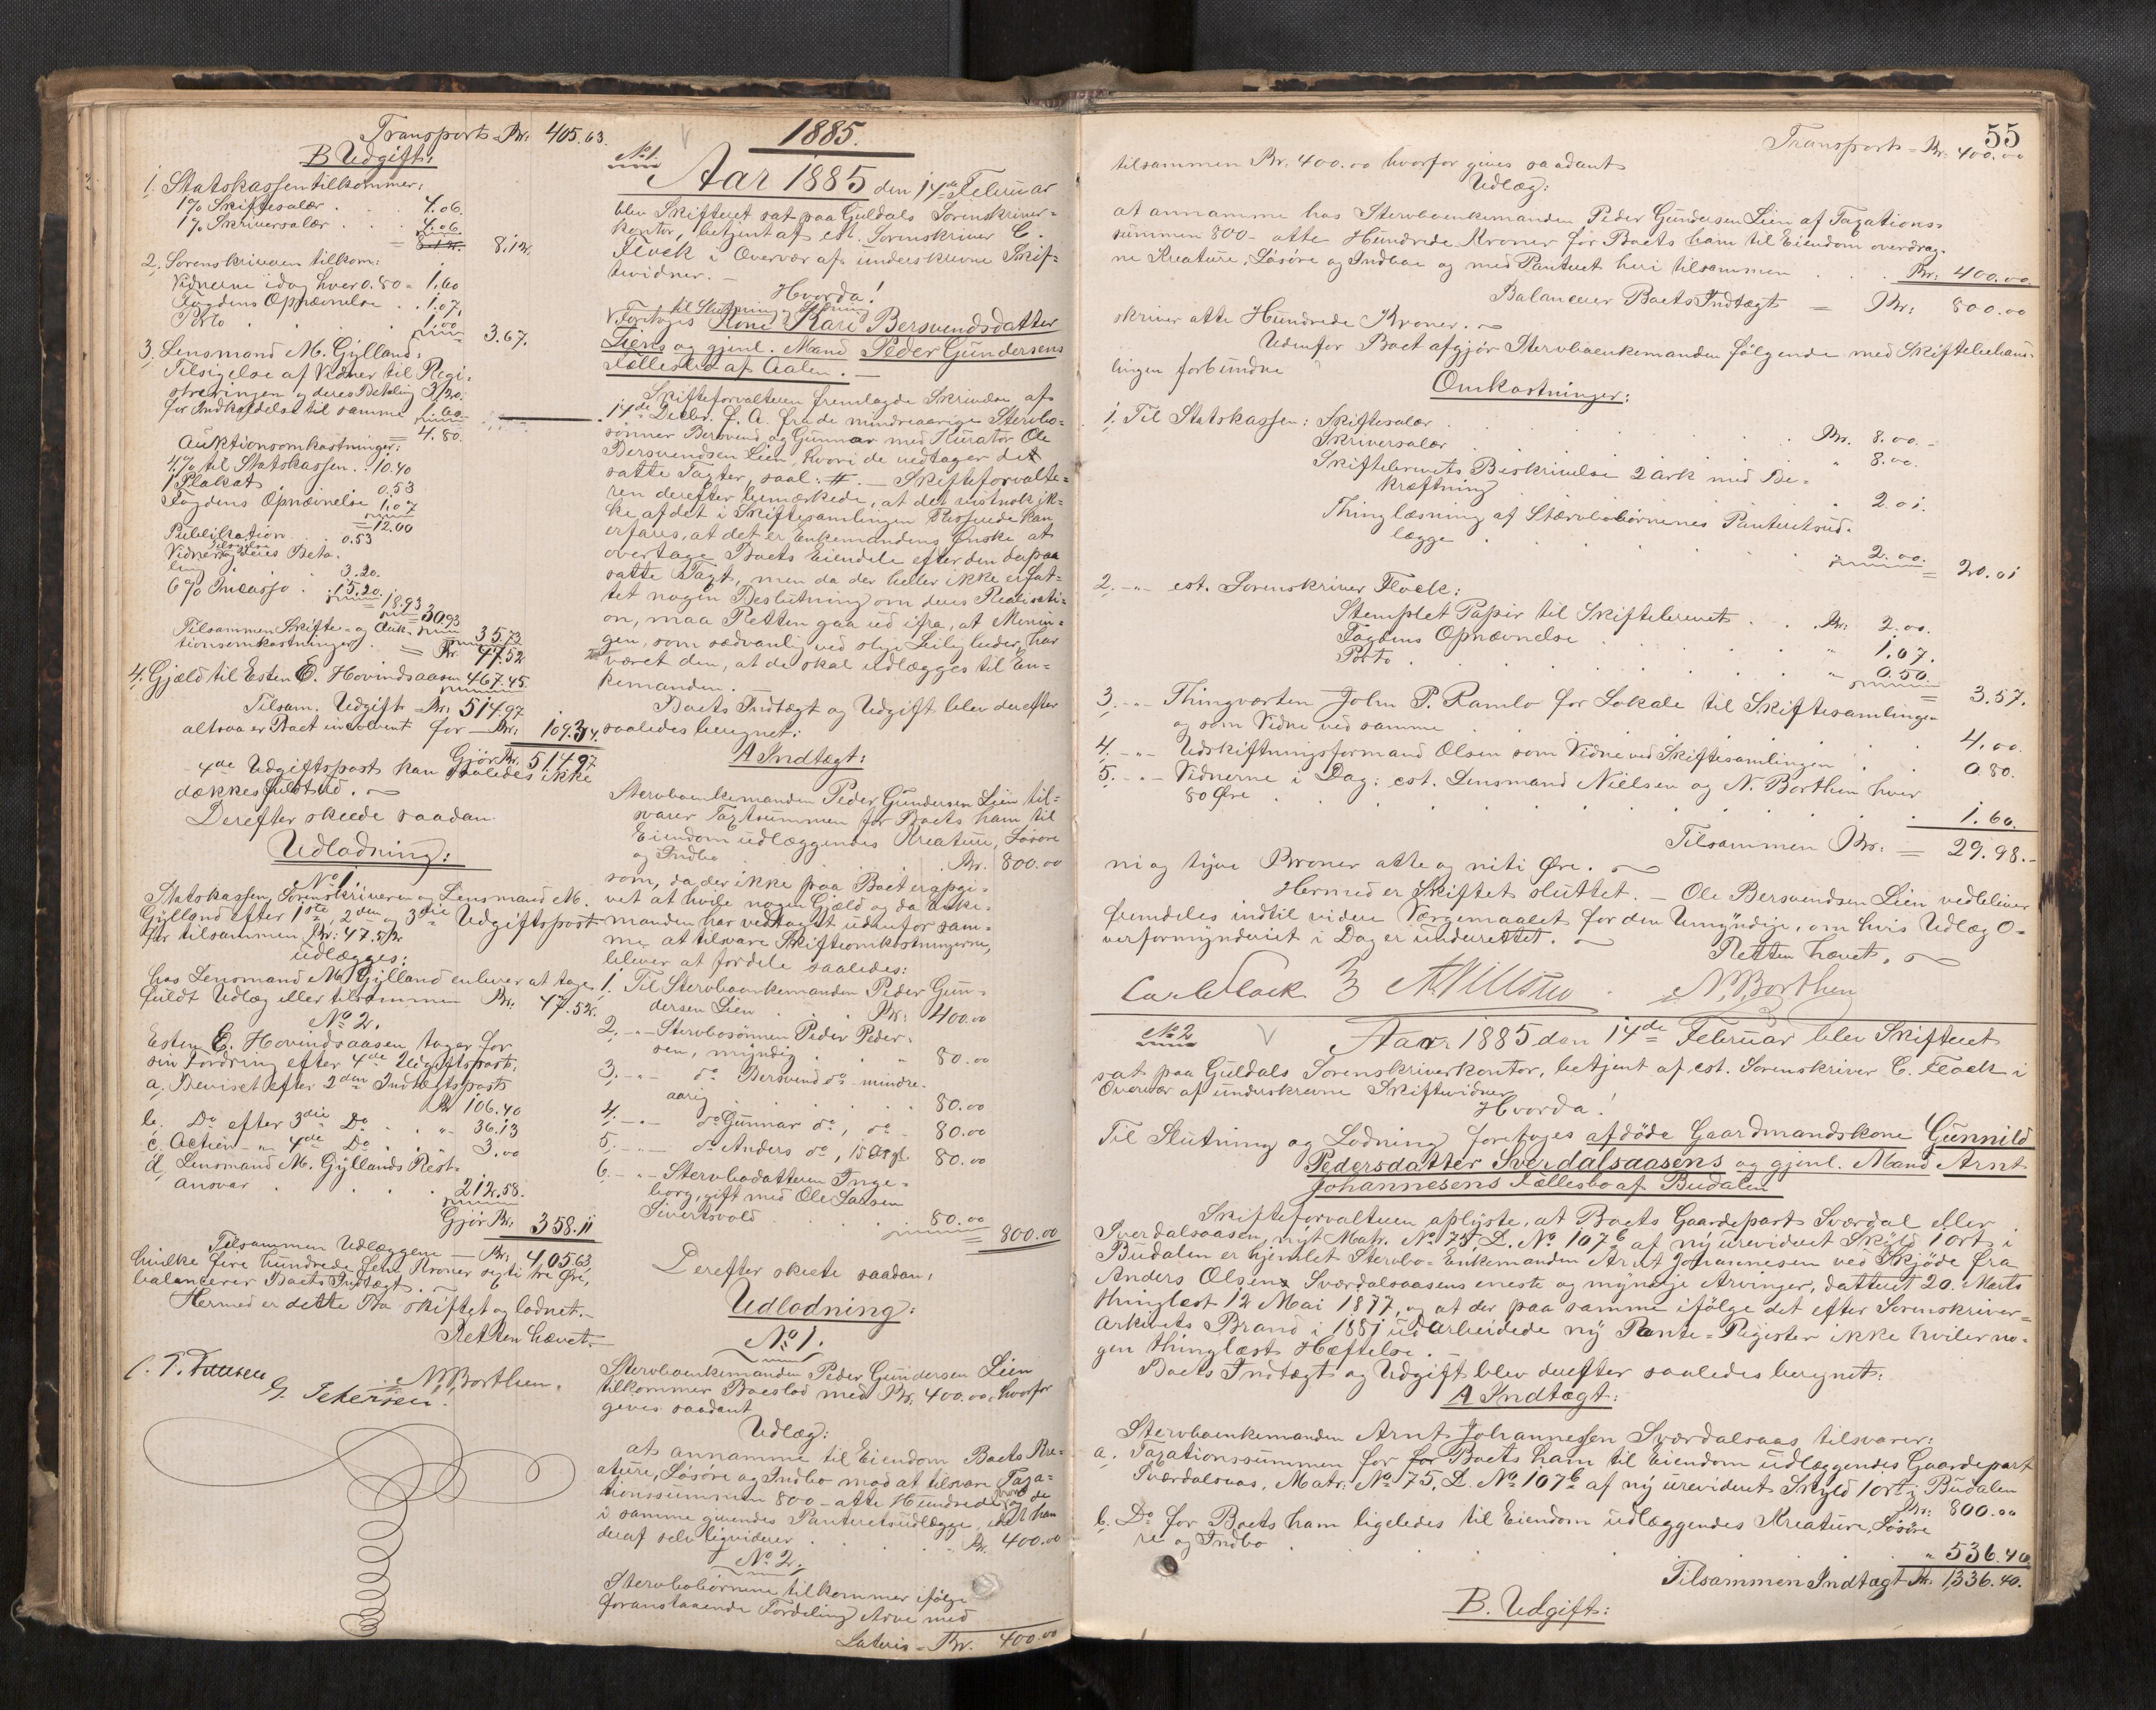 Transport = Kr: 405.63.
B Udgift:
1. Statskassen tilkommer:
1% Skiftesalær . . . 4.06.
1% Skriversalær . . . 4.06.
= 8.12. 8.12.
2. Sorenskriveren tilkom:
Vidnerne idag hver 0.80 = 1.60
Fogdens Opnævnelse . . 1.07,
Porto . . . . 1.00
3.67.
3. Lensmand M. Gylland:
Tilsigelse af Vidner til Regi-
streringen og deres Betaling 3.20.
for Indkaldelse til samme 1.60
= 4.80.
Auktionsomkostninger:
4% til Statskassen . . 10.40
1 Plakat . . . 0.53
Fogdens Opnævnelse 1.07
= 12.00
Publikation . . 0.53
Vidners Tilsigelse og deres Beta-
ling . . . 3.20.
6% Incasso . . 15.20.
= 18.93
= 30.93
Tilsammen Skifte- og Auk- 35.73
tionsomkostninger . = Kr. 47.52
4. Gjæld til Esten E. Hovindsaasen 467.45.
Tilsam. Udgift = Kr: 514.97
altsaa er Boet insolvent for — Kr: 109.34.
Gjør Kr. 514.97
4de Udgiftspost kan saaledes ikke
dækkes fuldt ud.
Derefter skeede saadan
Udlodning:
No 1.
Statskassen, Sorenskriveren og Lensmand M.
Gylland efter 1ste, 2den og 3die Udgiftspost
for tilsammen Kr: 47.52
udlægges:
hos Lensmand M. Gylland enhver at tage
fuldt Udlæg eller tilsammen Kr: 47.52.
No 2.
Esten E. Hovindsaasen tager for
sin Fordring efter 4de Udgiftspost:
a, Beviset efter 2den Indtægtspost
Kr 106.40
b. Do efter 3die Do . . " 36.13
c, Actien " 4de Do . . " 3.00
d, Lensmand M. Gyllands Rest-
ansvar . . . . 212.58.
Gjør Kr: 358.11
Tilsammen Udlæggene — Kr: 405.63,
hvilke fire hundrede fem Kroner sexti tre Øre,
balancerer Boets Indtægt.
Hermed er dette Bo skiftet og lodnet.
Retten hævet.
N. Borthen.
G. Petersen.
1885.
No 1.
Aar 1885 den 14de Februar
blev Skifteret sat paa Guldals Sorenskriver-
kontor, betjent af cst. Sorenskriver C.
Flock i Overvær af underskrevne Skif-
tevidner.
Hvorda!
til Slutning og Lodning
Foretoges Kone Kari Bersvendsdatter
Liens og gjenl. Mand Peder Gundersens
Fællesbo af Aalen.
Skifteforvalteren fremlagde Skrivelse af
14de Decbr. f. A. fra de mindreaarige Stervbo-
sønner Bersvend og Gunnar med Kurator Ole
Bersvendsen Lien, hvori de vedtager det
satte Taxter, saal: #. — Skifteforvalte-
ren derefter bemærkede, at det vistnok ik-
ke af det i Skiftesamlingen Passerede kan
erfares, at det er Enkemandens Ønske at
overtage Boets Eiendele efter den derpaa
satte Taxt, men da der heller ikke er fat-
tet nogen Beslutning om dens Realisati-
on, maa Retten gaa ud ifra, at Menin-
gen, som sædvanlig ved slige Leiligheder, har
været den, at de skal udlægges til En-
kemanden.
Boets Indtægt og Udgift blev derefter
saaledes beregnet:
A Indtægt:
Stervboenkemanden Peder Gundersen Lien til-
svarer Taxtsummen for Boets ham til
Eiendom udlæggendes Kreature, Løsøre
og Indbo . . . . Kr. 800.00
som, da der ikke paa Boet er opgi-
vet at hvile nogen Gjæld og da Enke-
manden har vedtaget udenfor sam-
me at tilsvare Skifteomkostningerne,
bliver at fordele saaledes:
1. Til Stervboenkemanden Peder Gun-
dersen Lien . . . Kr: 400.00
2. - " - Stervbosønnen Peder Peder-
sen, myndig . . . " 80.00
3. - " - do Bersvend do mindre-
aarig . . . . 80.00
4. - " - do Gunnar do, do 80.00
5. - " - do Anders do, 15 Aar gl. 80.00
6. - " - Stervbodatteren Inge-
borg, gift med Ole Larsen
Sivertsvold . . . 80.00
= 800.00
Derefter skeete saadan:
Udlodning:
No 1.
Stervboenkemanden Peder Gundersen Lien
tilkommer Boeslod med Kr: 400.00, hvorfor
geves saadant
Udlæg:
at annamme til Eiendom Boets Kre-
ature, Løsøre og Indbo mod at tilsvare Taxa-
tionssummen 800 – otte Hundrede Kroner og de
i samme givendes Panteretsudlægge, idet han
deraf selv liqviderer . . . Kr. 400.00
No 2.
Stervbobørnene tilkommer ifølge
foranstaaende Fordeling Arve med
Lateris = Kr. 400.00
55
Transport = Kr: 400.00
tilsammen Kr. 400.00 hvorfor gives saadant
Udlæg:
at annamme hos Stervboenkemanden Peder Gundersen Lien af Taxations-
summen 800 – otte Hundrede Kroner for Boets ham til Eiendom overdrag-
ne Kreature, Løsøre og Indboe og med Panteret heri tilsammen . . . Kr: 400.00
Balancerer Boets Indtægt = Kr: 800.00
skriver otte Hundrede Kroner.
Udenfor Boet afgjør Stervboenkemanden følgende med Skiftebehand-
lingen forbundne
Omkostninger:
1. Til Statskassen: Skiftesalær . . . . Kr. 8.00.
Skriversalær . . . . " 8.00.
Skiftebrevets Beskrivelse 2 Ark med Be-
kræftning . . . . " 2.01.
Thinglæsning af Stærvbobørnenes Panteretsud-
lægge . . . . " 2.00.
= 20.01
2. - " - cst. Sorenskriver Flock:
Stemplet Papir til Skiftebrevet . . Kr: 2.00.
Fogdens Opnævnelse . . . " 1.07.
Porto . . . . " 0.50.
= 3.57.
3. - " - Thingværten John P. Ramlo for Lokale til Skiftesamlingen
og som Vidne ved samme . . . . 4.00.
4. - " - Udskiftningsformand Olsen som Vidne ved Skiftesamlingen . . 0.80.
5. - " - Vidnerne i Dag: cst. Lensmand Nielsen og N. Borthen hver
80 Øre . . . . 1.60.
Tilsammen Kr: = 29.98.
ni og tyve Kroner otte og niti Øre.
Hermed er Skiftet sluttet. — Ole Bersvendsen Lien vedbliver
fremdeles indtil videre Værgemaalet for den Umyndige, om hvis Udlæg O-
verformynderiet i Dag er underrettet.
Retten hævet.
Carl Flock N. Borthen
No 2
Aar 1885 den 14de Februar blev Skifteret
sat paa Guldals Sorenskriverkontor, betjent af cst. Sorenskriver C. Flock i
Overvær af underskrevne Skiftevidner
Hvorda!
Til Slutning og Lodning foretoges afdøde Gaardmandskone Gunnild
Pedersdatter Sverdalsaasens og gjenl. Mand Arnt
Johannesens Fællesbo af Budalen
Skifteforvalteren oplyste, at Boets Gaardepart Sværdal eller
Sverdalsaasen, nyt Matr. No 75 L. No 107b af ny urevideret Skyld 1 ort i
Budalen er hjemlet Stervbo-Enkemanden Arnt Johannesen ved Skjøde fra
Anders Olsens Sværdalsaasens eneste og myndige Arvinger, datteret 20. Marts
thinglæst 12 Mai 1877, og at der paa samme ifølge det efter Sorenskriver-
arkivets Brand i 1881 udarbeidede ny Pante-Register ikke hviler no-
gen thinglæst Hæftelse.
Boets Indtægt og Udgift blev derefter saaledes beregnet:
A Indtægt:
Stervboenkemanden Arnt Johannessen Sværdalsaas tilsvarer:
a. Taxationssummen for for Boets ham til Eiendom udlæggendes Gaardepart
Sværdalsaas, Matr: No 75, L. No 107b af ny urevideret Skyld 1 ort i Budalen
Kr: 800.00
b. Do for Boets ham ligeledes til Eiendom udlæggendes Kreature, Løsøre
re og Indbo . . . . " 536.40
Tilsammen Indtægt Kr. 1,336.40.
B. Udgift: